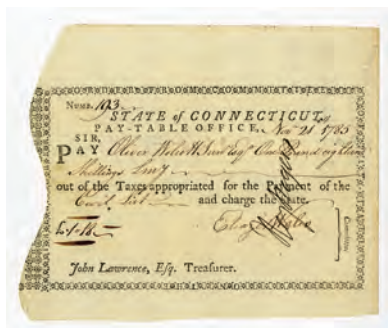 Numb. 193
STATE of CONNECTICUT,
PAY-TABLE OFFICE, Nov 21 1785
SIR,
PAY Oliver Wolcott Junr Esqr One Pound eighteen
Shillings
out of the Taxes appropriated for the Payment of the
Civil List and charge the State.
£1-18
Committee.
John Lawrence, Esq. Treasurer.